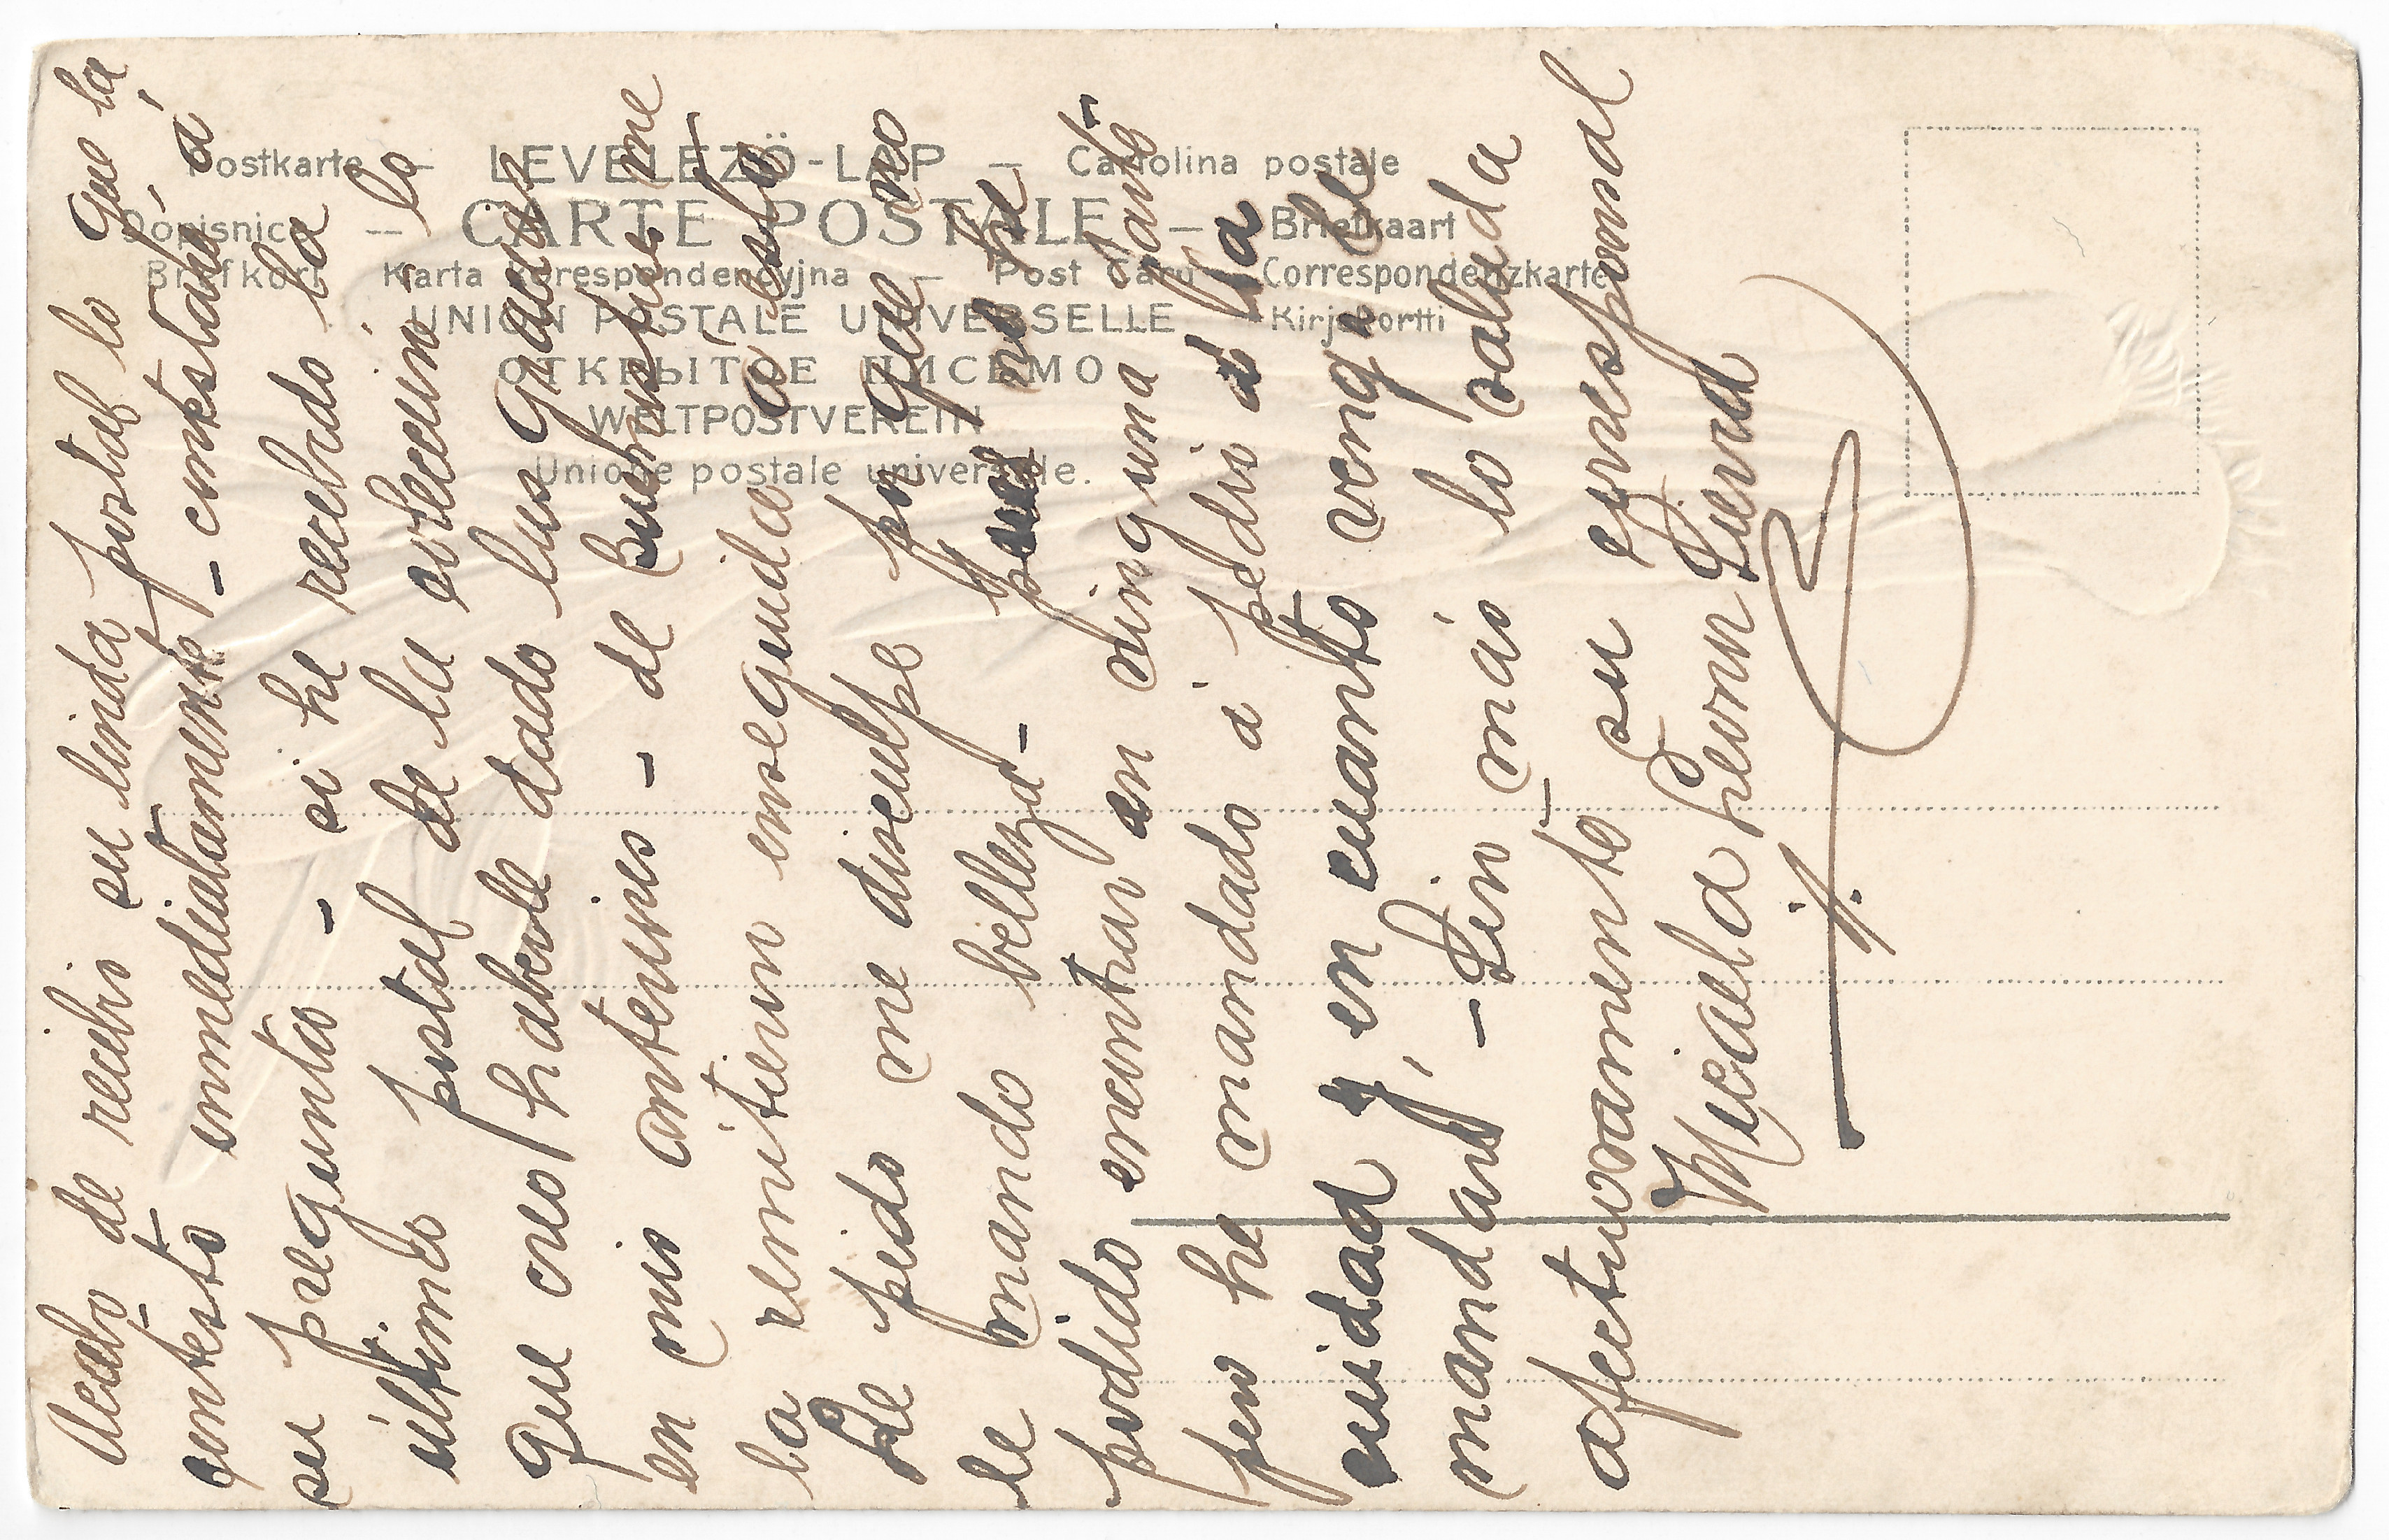 Postkarte — LEVELEZÖ-LAP — Cartolina postale
Dopisnice — CARTE POSTALE — Briefkaart
Brefkort Karta Korespondencyjna — Post Card Correspondenzkarte
UNION POSTALE UNIVERSELLE Kirjekortti
ОТКРЫТОЕ ПИСЬМО
WELTPOSTVEREIN
Unione postale universale.
Acabo de recibir su linda postal lo que la
contesto inmediatamente - contestaré, á
su pregunta - si he recibido la
última postal de la colección, lo
que creo haberle dado las gracias
en mis anteriores - de Buenos Aires me
la remitieron enseguida á esta
Le pido me disculpe por que no
le mando belleza - no he
podido encontrar en ninguna parte
pero he mandado á pedir á la
ciudad y en cuanto venga le
mandaré, - Sin más lo saluda
afectuosamente su corresponsal
Micaela